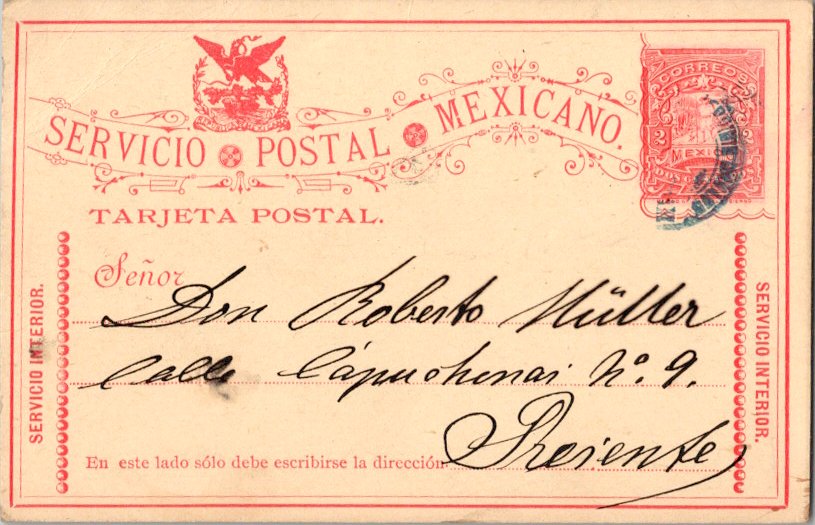 SERVICIO POSTAL MEXICANO.
CORREOS
2 2
MEXICO
DOS CENTAVOS
TARJETA POSTAL.
SERVICIO INTERIOR.
SERVICIO INTERIOR.
Señor
Don Roberto Müller
Calle Cápuchinas Nº. 9.
Presente
En este lado sólo debe escribirse la dirección